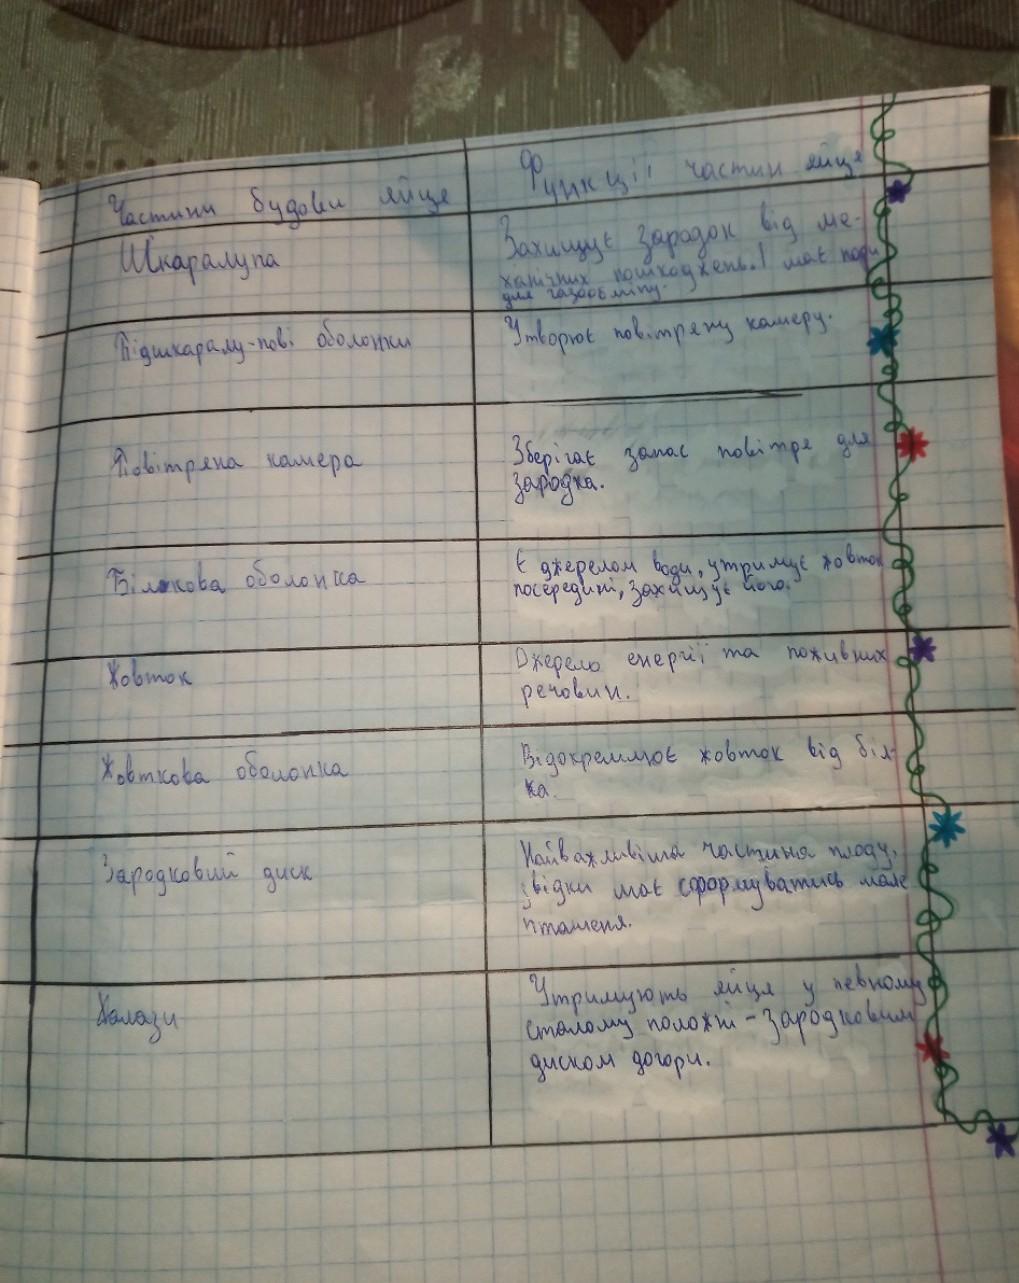 Частини будови яйце
Функції частин яйця
Шкаралупа
Захищує зародок від ме-
ханічних пошкоджень. І має пори
для газообміну.
Підшкаралу-пові оболонки
Утворює повітряну камеру.
Повітряна камера
Зберігає запас повітре для
зародка.
Білкова оболонка
Є джерелом води, утримує жовток
посередині, захищує його.
Жовток
Джерело енергії та поживних
речовин.
Жовткова оболонка
Відокремлює жовток від біл-
ка.
Зародковий диск
Найважливіша частина плоду,
звідки має сформуватись мале
пташеня.
Халази
Утримують яйця у певному
сталому положні - зародковим
диском догори.